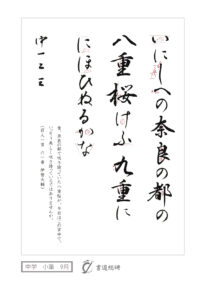 いにしへの奈良の都の
八重桜けふ九重に
にほひぬるかな
昔、奈良の都で咲き誇っていた八重桜が、今日はこの宮中で、
いっそう美しく咲き誇っているではありませんか。
(百人一首 六一番 伊勢大輔)
中学 小筆 9月
書道総研